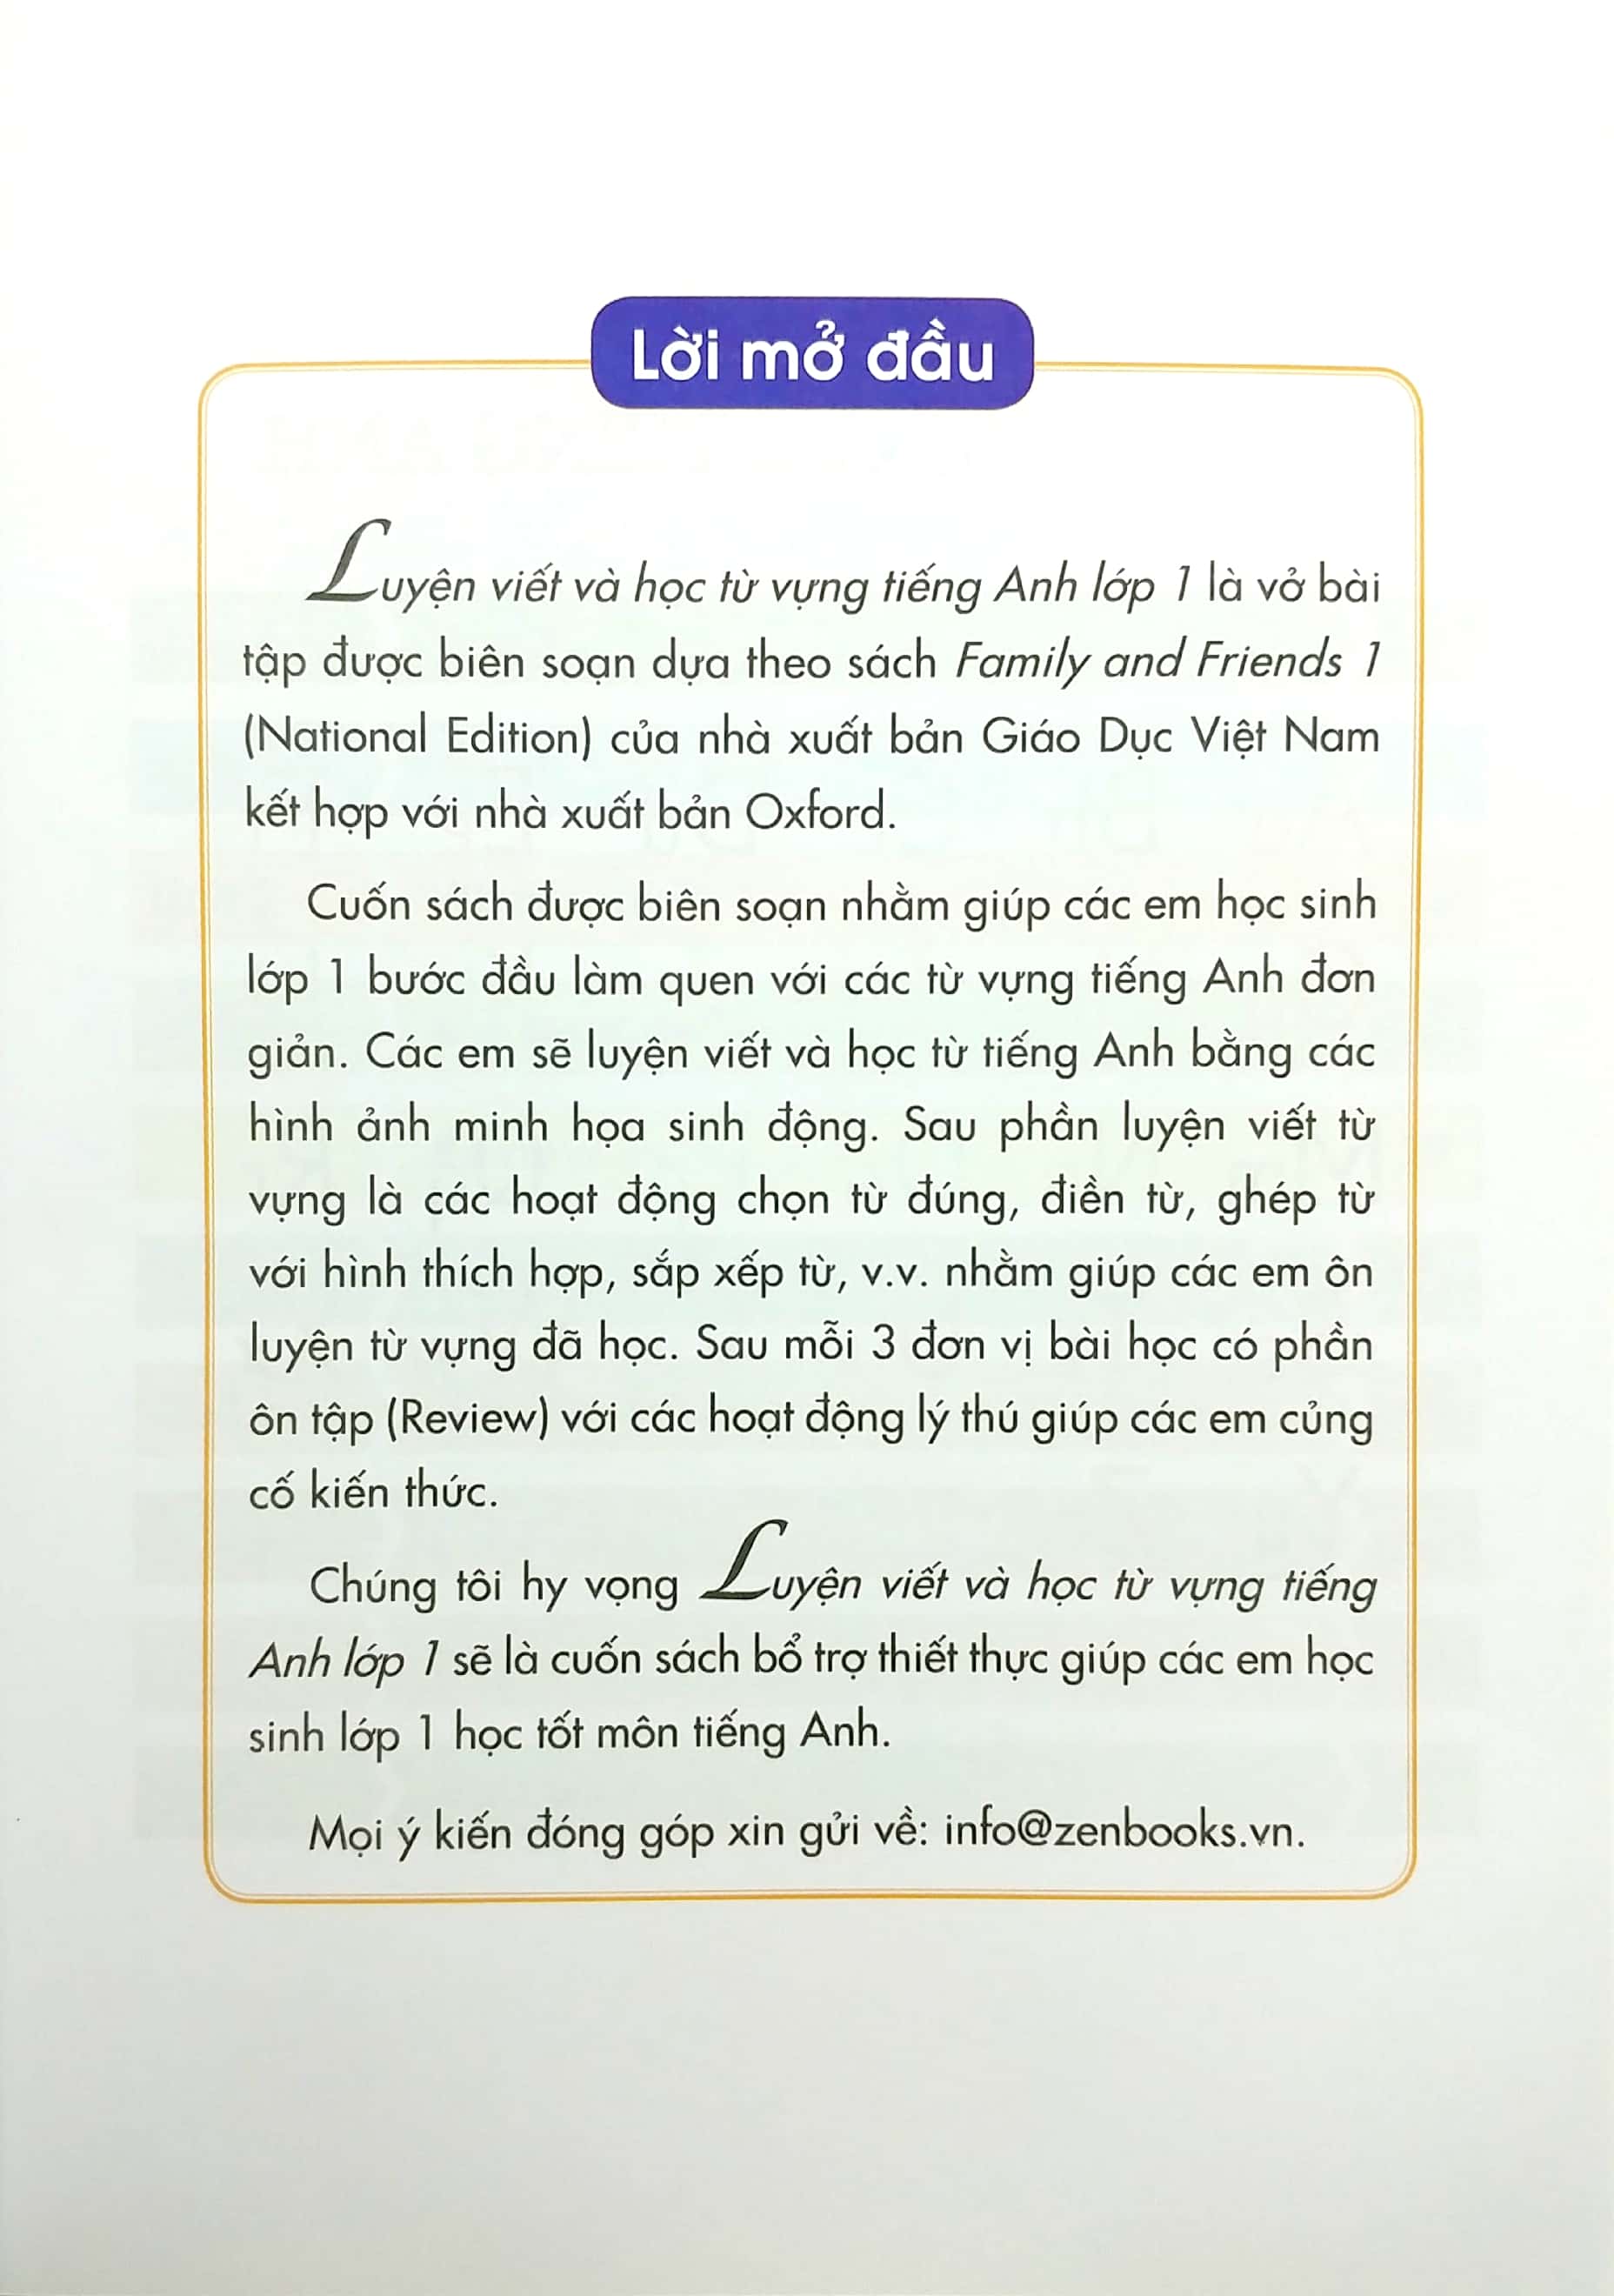 Lời mở đầu
Luyện viết và học từ vựng tiếng Anh lớp 1 là vở bài
tập được biên soạn dựa theo sách Family and Friends 1
(National Edition) của nhà xuất bản Giáo Dục Việt Nam
kết hợp với nhà xuất bản Oxford.
Cuốn sách được biên soạn nhằm giúp các em học sinh
lớp 1 bước đầu làm quen với các từ vựng tiếng Anh đơn
giản. Các em sẽ luyện viết và học từ tiếng Anh bằng các
hình ảnh minh họa sinh động. Sau phần luyện viết từ
vựng là các hoạt động chọn từ đúng, điền từ, ghép từ
với hình thích hợp, sắp xếp từ, v.v. nhằm giúp các em ôn
luyện từ vựng đã học. Sau mỗi 3 đơn vị bài học có phần
ôn tập (Review) với các hoạt động lý thú giúp các em củng
cố kiến thức.
Chúng tôi hy vọng Luyện viết và học từ vựng tiếng
Anh lớp 1 sẽ là cuốn sách bổ trợ thiết thực giúp các em học
sinh lớp 1 học tốt môn tiếng Anh.
Mọi ý kiến đóng góp xin gửi về: info@zenbooks.vn.